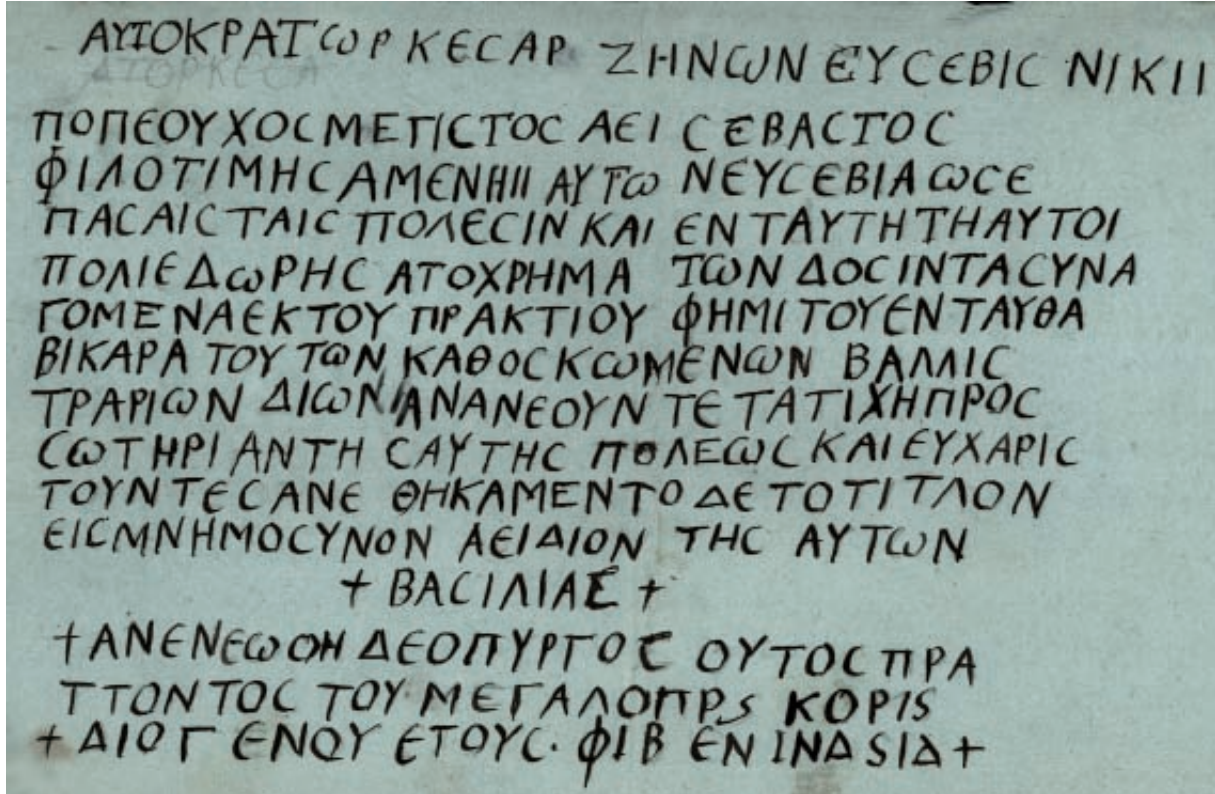 ΑΥΤΟΚΡΑΤωΡ ΚΕϹΑΡ ΖΗΝωΝ ΕΥϹΕΒΙϹ ΝΙΚΙΙ
ΠΟΠΕΟΥΧΟϹ ΜΕΓΙϹΤΟϹ ΑΕΙ ϹΕΒΑϹΤΟϹ
ΦΙΛΟΤΙΜΗϹΑΜΕΝΗΙΙ ΑΥΤω ΝΕΥϹΕΒΙΑωϹΕ
ΠΑϹΑΙϹΤΑΙϹ ΠΟΛΕϹΙΝ ΚΑΙ ΕΝ ΤΑΥΤΗΤΗΑΥΤΟΙ
ΠΟΛΙΕΔωΡΗϹ ΑΤΟΧΡΗΜΑ ΤωΝ ΔΟϹΙΝΤΑϹΥΝΑ
ΓΟΜΕΝΑΕΚΤΟΥ ΠΡΑΚΤΙΟΥ ΦΗΜΙΤΟΥΕΝΤΑΥΘΑ
ΒΙΚΑΡΑΤΟΥ ΤωΝ ΚΑΘΟϹΚωΜΕΝωΝ ΒΑΛΛΙϹ
ΤΡΑΡΙωΝ ΔΙωΝ ΑΝΑΝΕΟΥΝΤΕ ΤΑΤΙΧΗΠΡΟϹ
ϹωΤΗΡΙΑΝΤΗ ϹΑΥΤΗϹ ΠΟΛΕωϹ ΚΑΙ ΕΥΧΑΡΙϹ
ΤΟΥΝΤΕϹΑΝΕ ΘΗΚΑΜΕΝΤΟ ΔΕ ΤΟΤΙΤΛΟΝ
ΕΙϹΜΝΗΜΟϹΥΝΟΝ ΑΕΙΔΙΟΝ ΤΗϹ ΑΥΤωΝ
+ ΒΑϹΙΛΙΑΕ +
+ΑΝΕΝΕωΟΗ ΔΕΟΠΥΡΓΟϹ ΟΥΤΟϹ ΠΡΑ
ΤΤΟΝΤΟϹ ΤΟΥ ΜΕΓΑΛΟΠΡS ΚΟΡΙS
+ΔΙΟΓΕΝΟΥ ΕΤΟΥϹ· ΦΙΒ ΕΝ ΙΝΔSΙΔ+